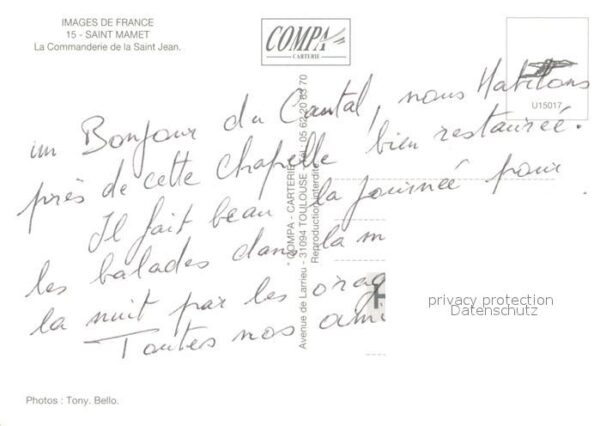 IMAGES DE FRANCE
15 - SAINT MAMET
La Commanderie de la Saint Jean.
COMPA
CARTERIE
U15017
un Bonjour du Cantal, nous Habitons
près de cette chapelle bien restaurée.
Il fait beau la journée pour
les balades dans la m
la nuit par les orag
Toutes nos ami
" COMPA - CARTERIE
Avenue de Larrieu - 31094 TOULOUSE Tél : 05 62 20 83 70
Reproduction interdite
privacy protection
Datenschutz
Photos : Tony. Bello.